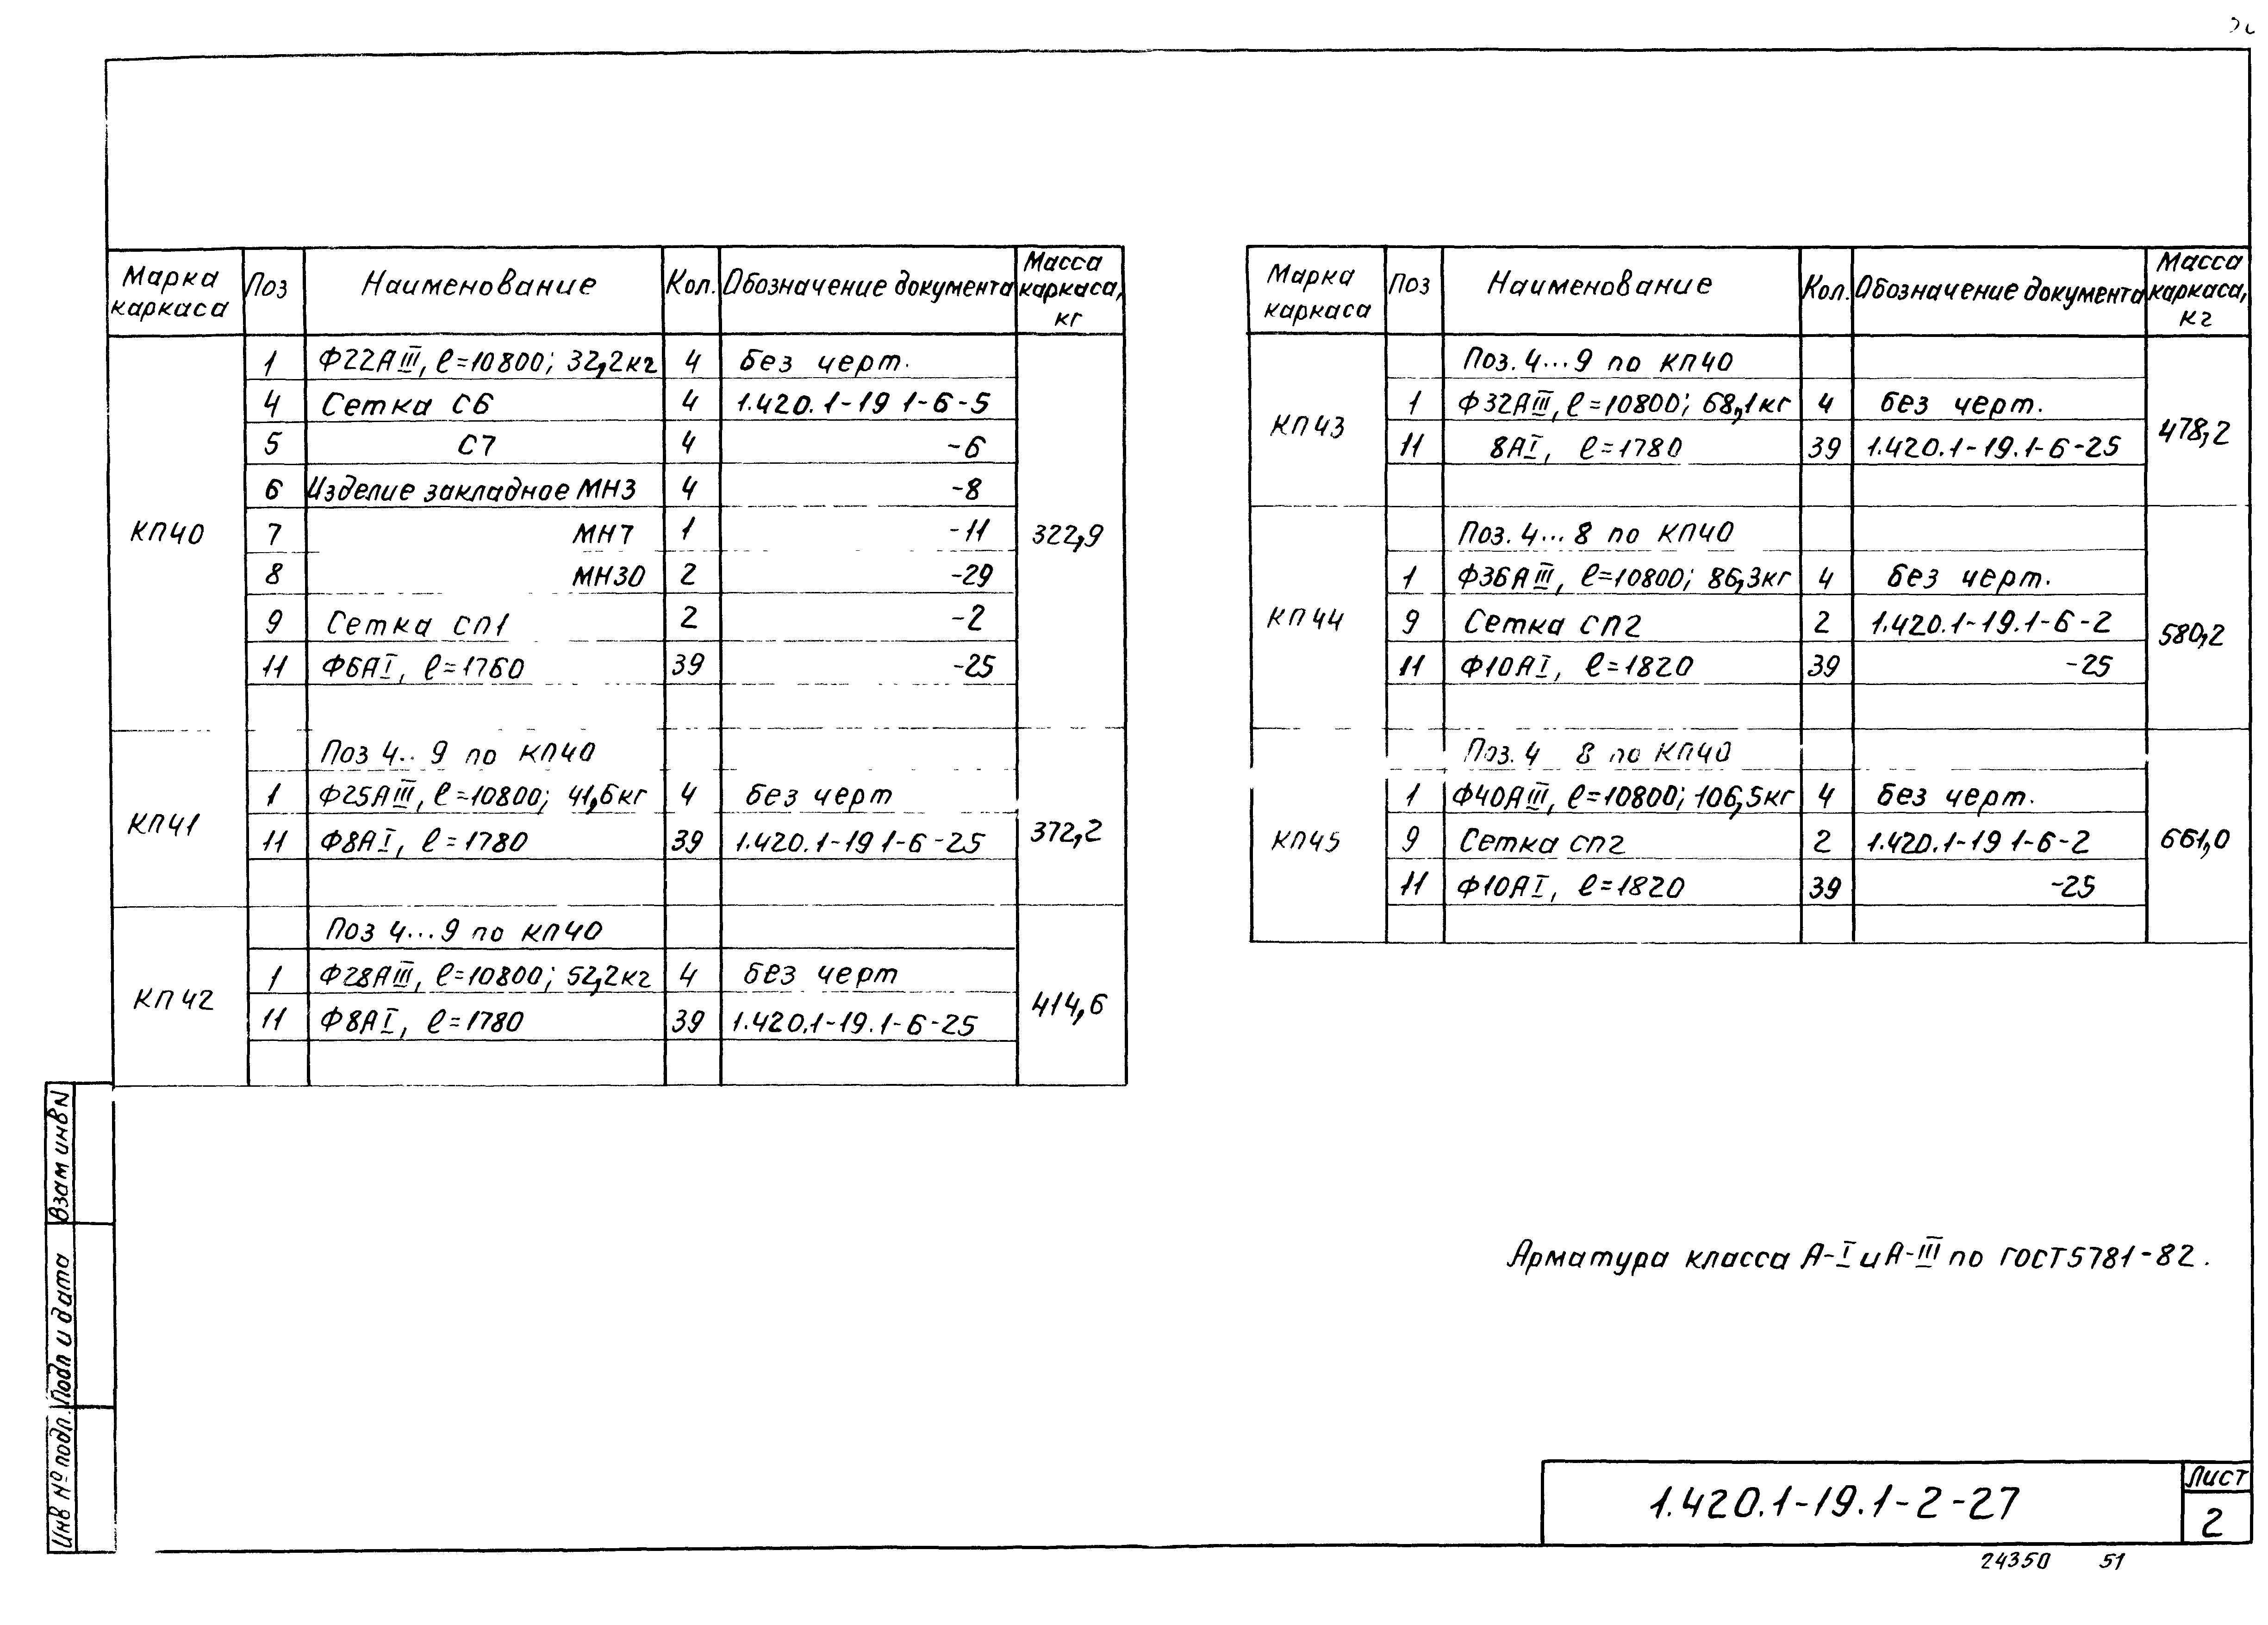 Марка каркаса Поз Наименование Кол. Обозначение документа Масса каркаса, кг
КП40 322,9
1 Ф22АIII, ℓ=10800; 32,2кг 4 без черт.
4 Сетка С6 4 1.420.1-19 1-6-5
5 С7 4 -6
6 Изделие закладное МН3 4 -8
7 МН7 1 -11
8 МН30 2 -29
9 Сетка СП1 2 -2
11 Ф6АI, ℓ=1760 39 -25
КП41 372,2
Поз 4.. 9 по КП40
1 Ф25АIII, ℓ=10800; 41,6кг 4 без черт
11 Ф8АI, ℓ=1780 39 1.420.1-19 1-6-25
КП42 414,6
Поз 4...9 по КП40
1 Ф28АIII, ℓ=10800; 52,2кг 4 без черт
11 Ф8АI, ℓ=1780 39 1.420.1-19.1-6-25
Марка каркаса Поз Наименование Кол. Обозначение документа Масса каркаса, кг
КП43 478,2
Поз. 4...9 по КП40
1 Ф32АIII, ℓ=10800; 68,1кг 4 без черт.
11 8АI, ℓ=1780 39 1.420.1-19.1-6-25
КП44 580,2
Поз. 4...8 по КП40
1 Ф36АIII, ℓ=10800; 86,3кг 4 без черт.
9 Сетка СП2 2 1.420.1-19.1-6-2
11 Ф10АI, ℓ=1820 39 -25
КП45 661,0
Поз. 4 8 по КП40
1 Ф40АIII, ℓ=10800; 106,5кг 4 без черт.
9 Сетка СП2 2 1.420.1-19 1-6-2
11 Ф10АI, ℓ=1820 39 -25
Арматура класса А-I и А-III по ГОСТ 5781-82.
Взам инв N
Подп и дата
Инв № подл.
1.420.1-19.1-2-27
Лист
2
24350 51